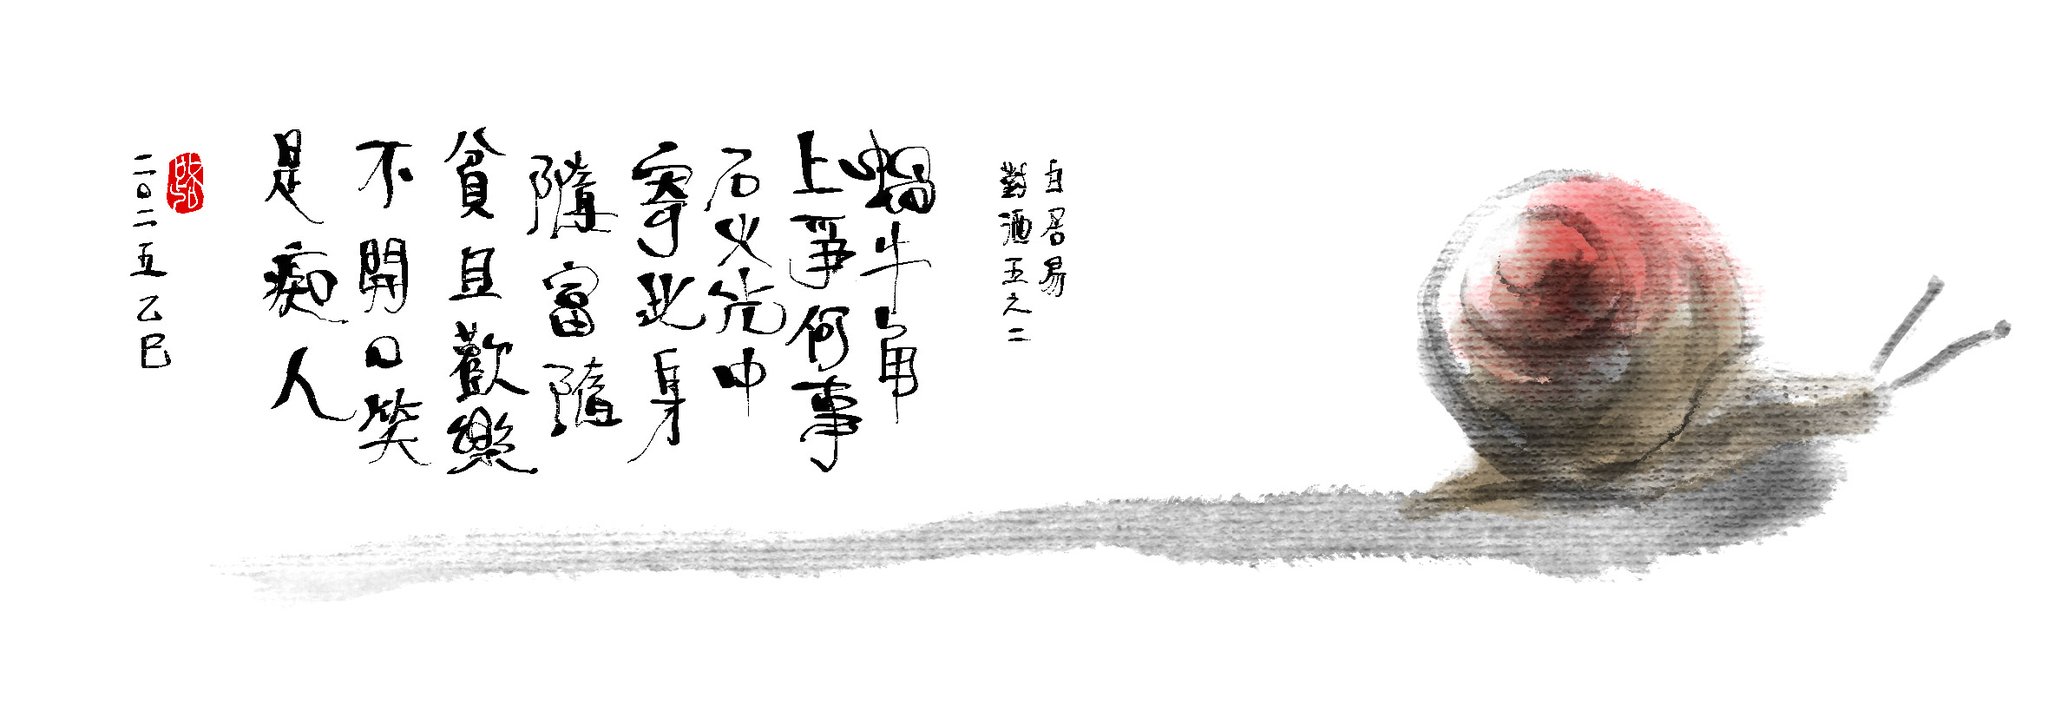 白居易
對酒五之二
蝸牛角
上爭何事
石火光中
寄此身
隨富隨
貧且歡樂
不開口笑
是癡人
二〇二五乙巳